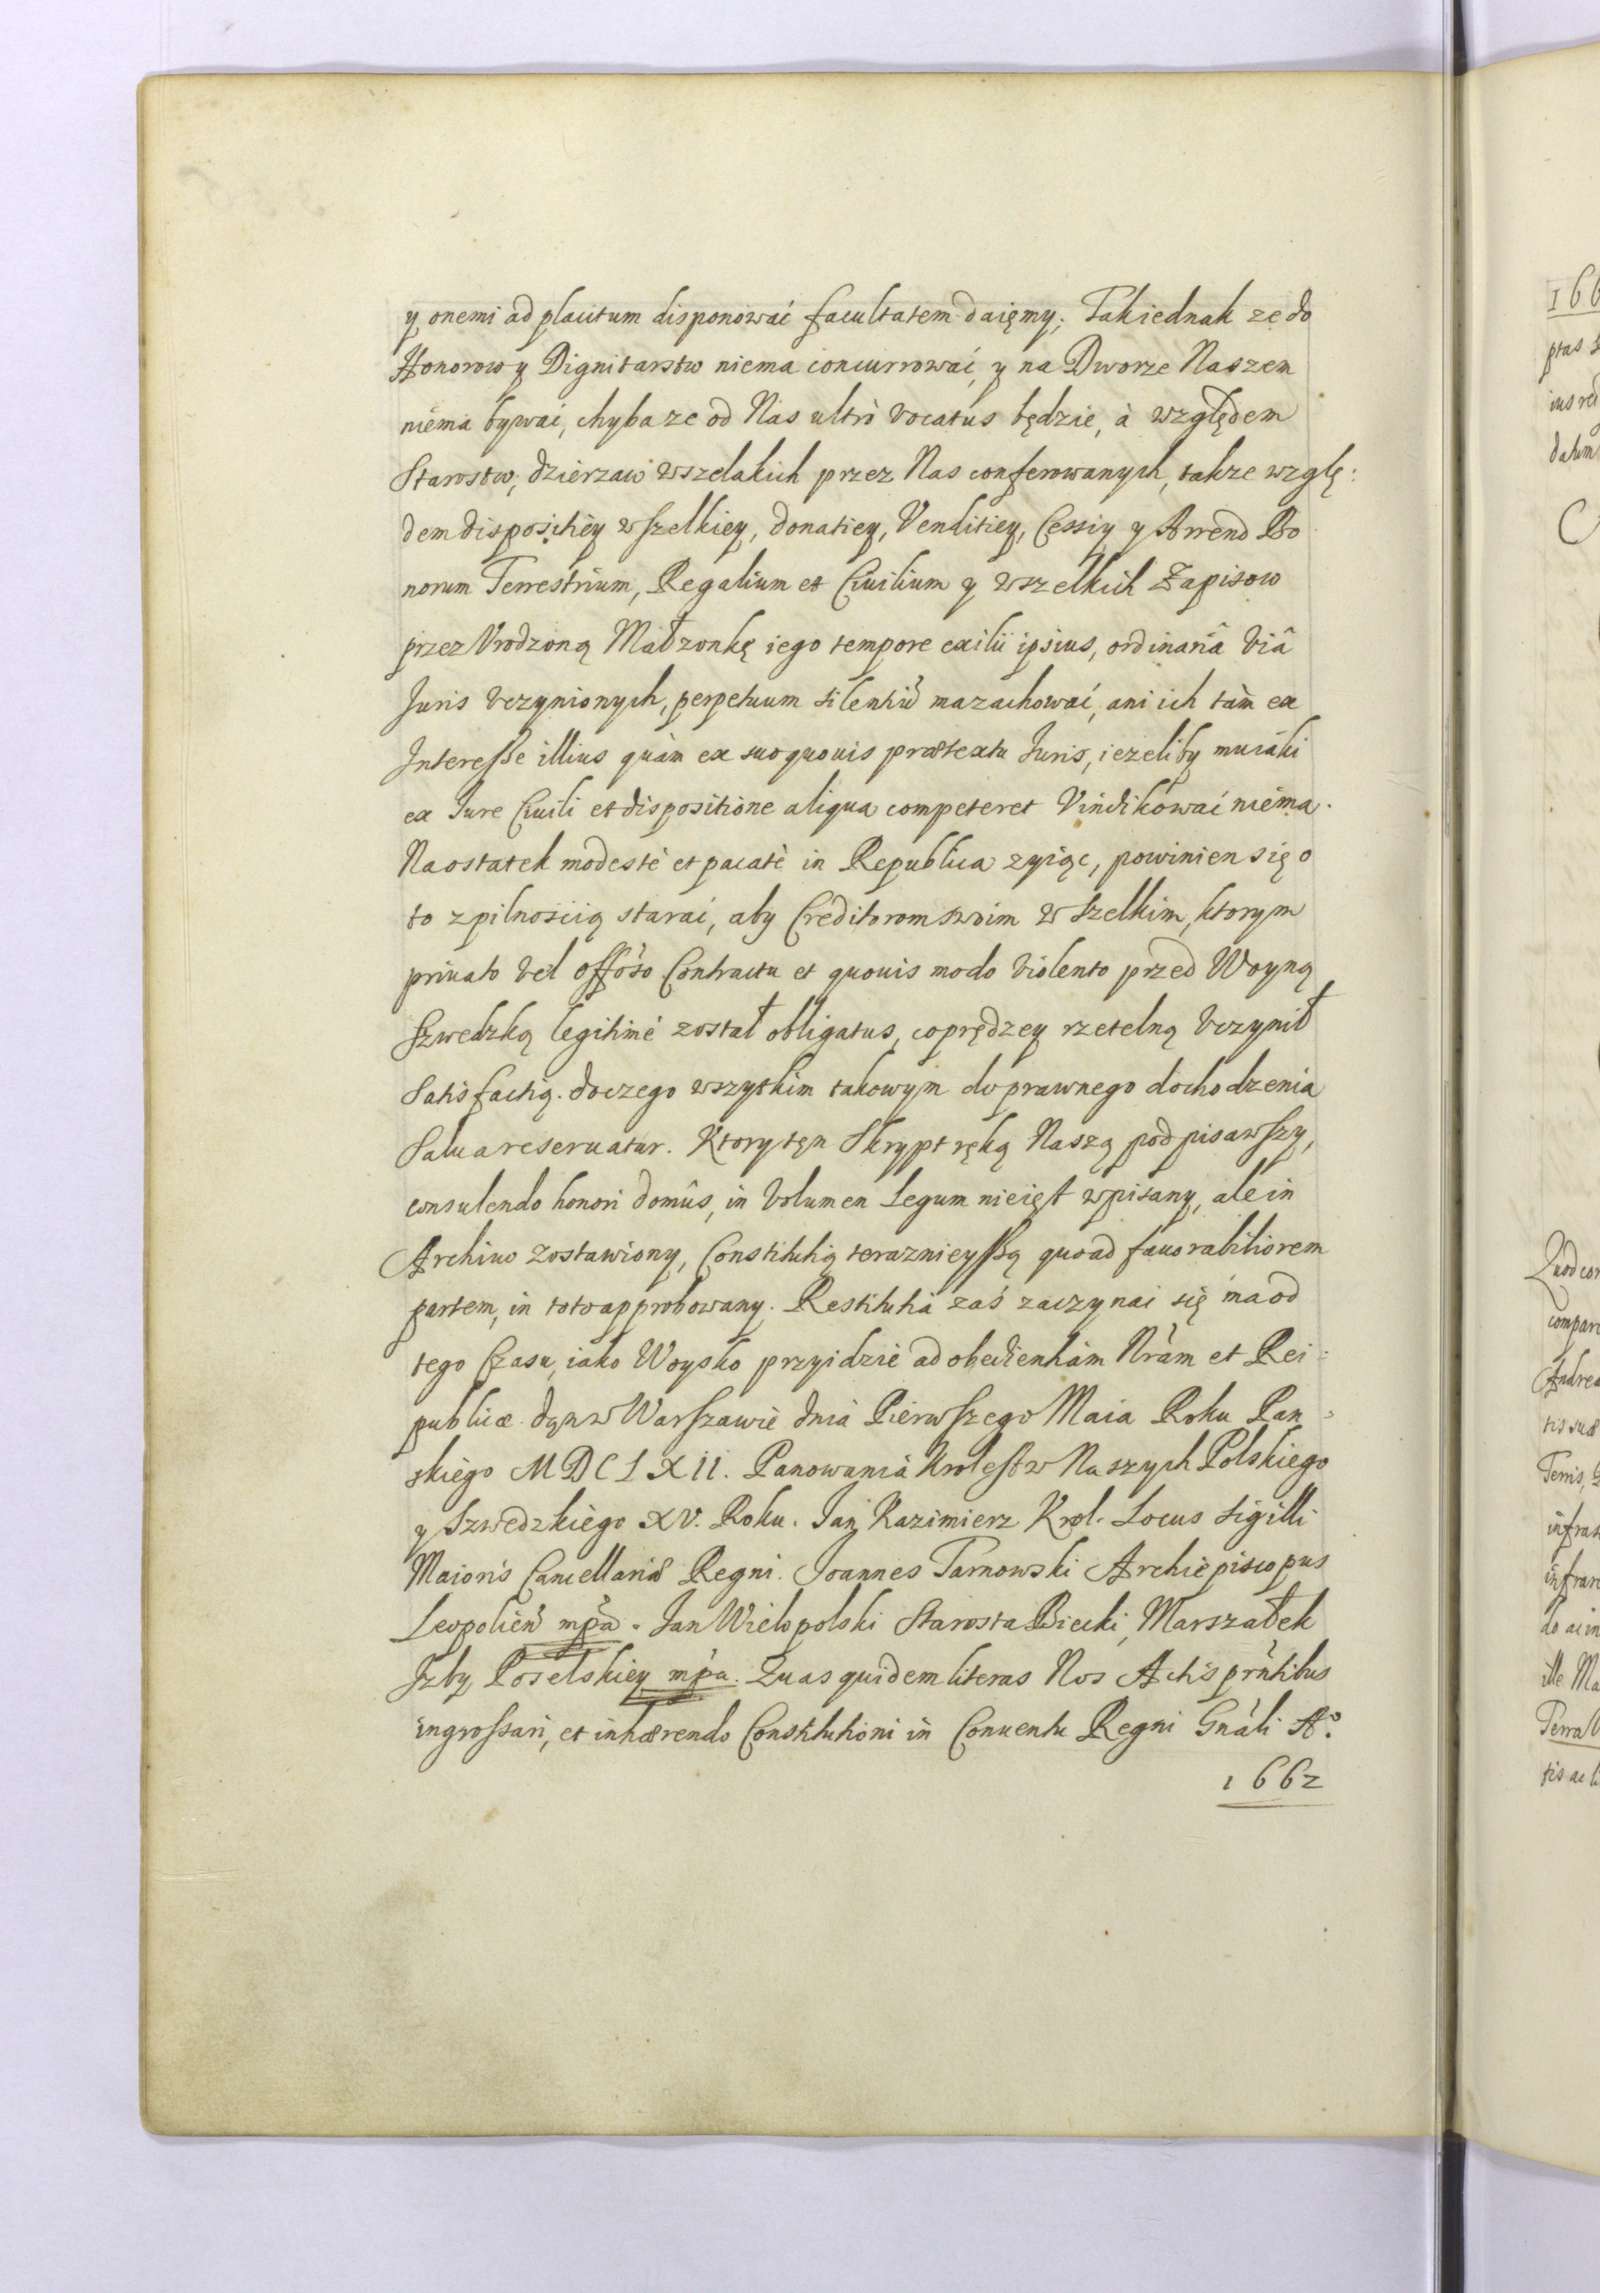 y onemi ad placitum disponować facultatem daięmy; Takiednak ze do
Honorow y Dignitarstw niema concurrować, y na Dworze Naszem
niéma bywać, chyba ze od Nas ultrò vocatus będzie, à względem
Starostw, dzierzaw wszelakich przez Nas conferowanych, takze wzglę:
dem dispositiey wszelkiey, donatiey, Venditiey, Cessiy y Arrend Bo
norum Terrestrium, Regalium et Ciuilium y wszelkich Zapisow
przez Vrodzoną Małzonkę iego tempore exilii ipsius, ordinariâ viâ
Juris vczynionych, perpetuum silentiū ma zachować, ani ich tàm ex
Interesse illius quàm ex suo quouis prætextu Juris, iezeliby mu iáki
ex Jure Ciuili et dispositione aliqua competeret Vindikówać niéma.
Naostatek modestè et pacatè in Republica zyiąc, powinien się o
to z pilnością starać, aby Creditorom swoim wszelkim, ktorym
priuato vel offóso Contractu et quouis modo violento przed Woyną
Szwedzką legitimè został obligatus, coprędzey rzetelną vczynił
Satisfactią. doczego wszytkim takowym do prawnego dochodzenia
Salua reseruatur. Ktory tęn Skrypt ręką Naszą podpisawszy,
consulendo honori domûs, in Volumen Legum nieięst wpisany, ale in
Archiuo zostawiony, Constitutią teraznieyssą quoad fauorabiliorem
partem, in toto approbowany. Restitutia zaś zaczynać się ma od
tego Czasu, iako Woysko przyidzie ad obedientiàm Nràm et Rei:
publicæ. dąn w Warszawie dnià Pierwszego Maia Roku Pan:
skiégo MDCLXII. Panowania Krolestw Naszych Polskiégo
y Szwedzkiégo XV. Roku. Jan Kazimierz Krol. Locus Sigilli
Maioris Cancellariæ Regni. Joannes Tarnowski Archiepiscopus
Leopolień mṕa. Jan Wielopolski Starosta Biecki, Marszałek
Jzby Poselskiey mṕa. Quas quidem literas Nos Actis prńtibus
ingrossari, et inhærendo Constitutioni in Conuentu Regni Gnáli A°.
1662
1 66
ptas
ius re
datum
Quod con
compar
Andrea
tis suæ
Terris,
infras
infran
do ac in
ille Ma
Terra
tis ac li